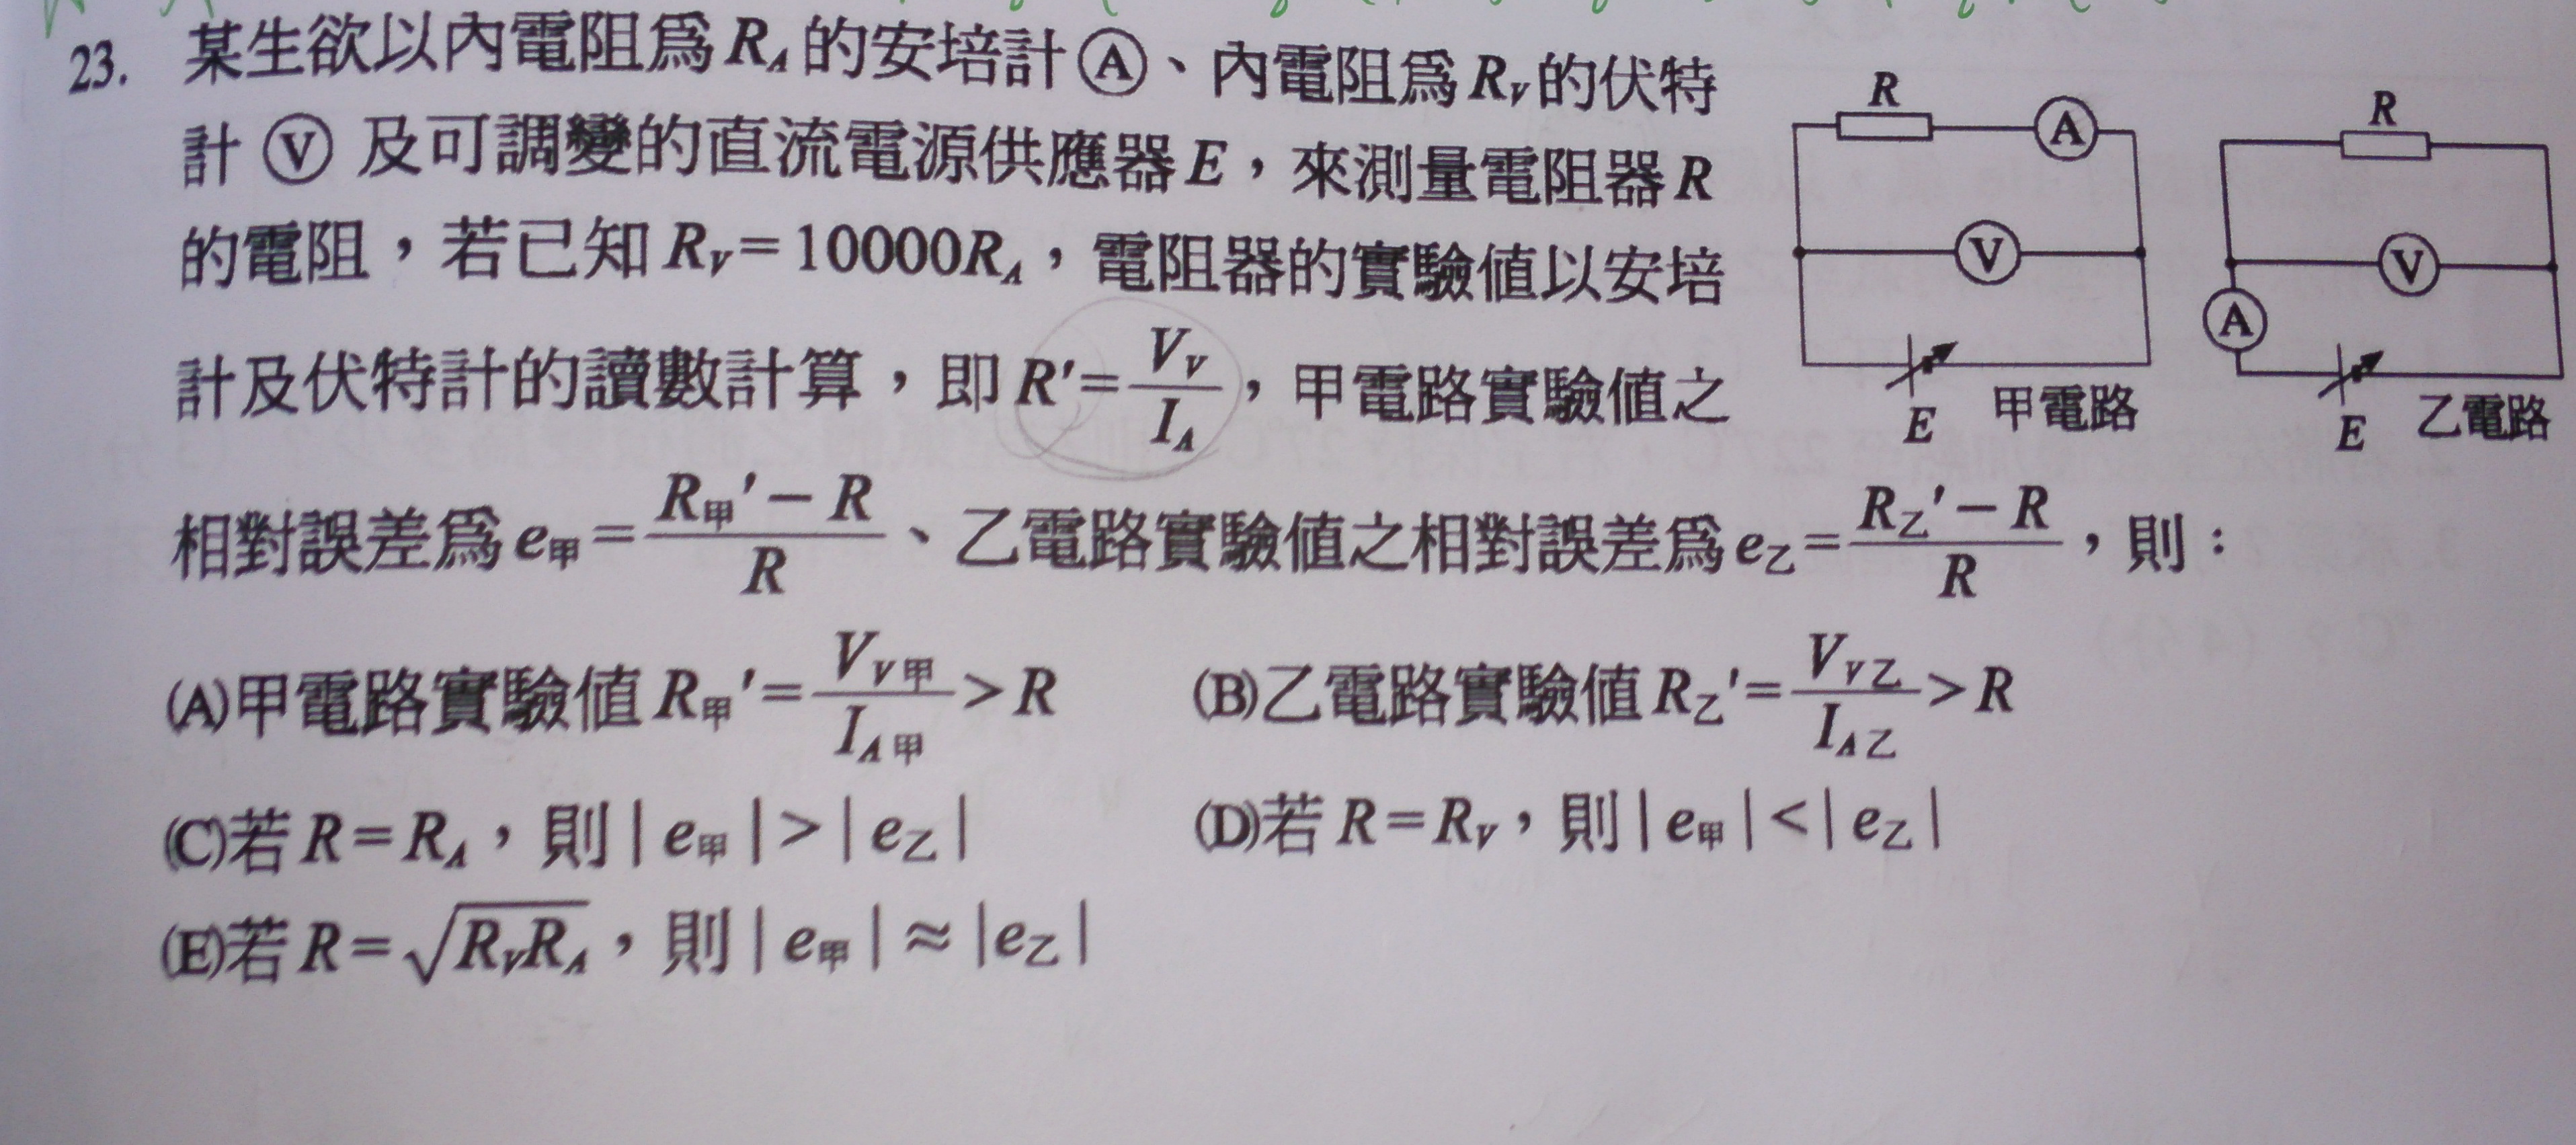 23. 某生欲以內電阻為 R_A 的安培計Ⓐ、內電阻為 R_V 的伏特
計 Ⓥ 及可調變的直流電源供應器 E，來測量電阻器 R
的電阻，若已知 R_V = 10000R_A，電阻器的實驗值以安培
計及伏特計的讀數計算，即 R' = V_V / I_A，甲電路實驗值之
相對誤差為 e甲 = (R甲' − R) / R、乙電路實驗值之相對誤差為 e乙 = (R乙' − R) / R，則：
(A)甲電路實驗值 R甲' = V_V甲 / I_A甲 > R
(B)乙電路實驗值 R乙' = V_V乙 / I_A乙 > R
(C)若 R = R_A，則 | e甲 | > | e乙 |
(D)若 R = R_V，則 | e甲 | < | e乙 |
(E)若 R = √(R_V R_A)，則 | e甲 | ≈ | e乙 |
R
A
V
E
甲電路
R
V
A
E
乙電路